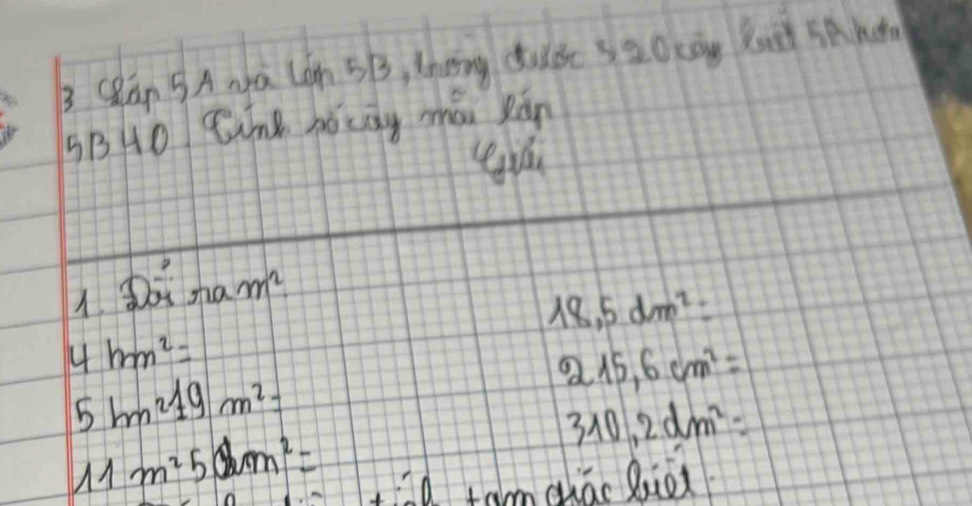 3 Lớp 5A và lớp 5B, trồng được 320 cây biết 5A hơn
5B 40 Tính số cây mỗi lớp
Giải
1. Đổi ra m²
4 hm² =
5 hm² 19 m² =
11 m² 5 dm² =
18,5 dm² =
215,6 cm² =
310,2 dm² =
tam giác biết